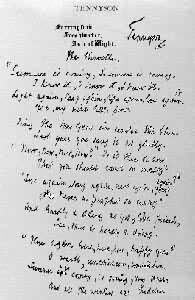 TENNYSON
Farringford,
Freshwater,
Isle of Wight.
Tennyson
The Throstle.
"Summer is coming, summer is coming.
I know it, I know it, I know it.
Light again, leaf again, life again, love again"
Yes, my wild little Poet.
Sing the new year in under the blue.
Last year you sang it as gladly.
"New, new, new, new"! Is it then so new
That you should carol so madly?
"Love again, song again, nest again, young again"
Never a prophet so crazy!
And hardly a daisy as yet, little friend,
See, there is hardly a daisy.
"Here again, here, here, here, happy year"!
O warble unchidden, unbidden!
Summer is coming, is coming, my dear,
And all the winters are hidden.